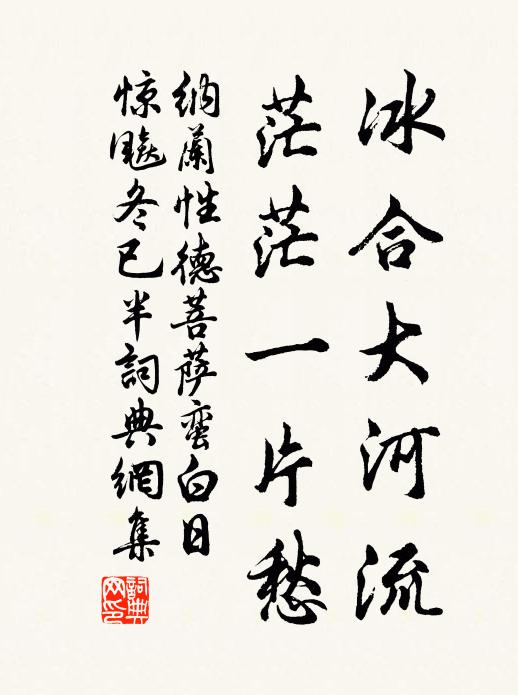 冰合大河流
茫茫一片愁
纳蘭性德菩萨蛮白日
惊飚冬已半詞典網集
詞典
网印